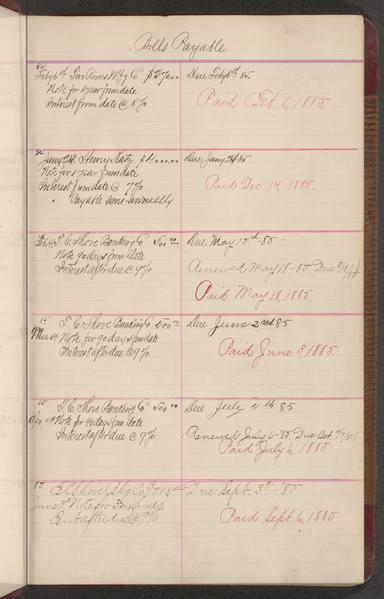 Bills Payable.
84
Feby 6th Two Rivers Mfg Co $270.00 Due Feby 6th 85.
Note for 1 year from date
Interest from date @ 8% Paid Feb. 6, 1885.
Jany 24. Henry Katz $4000.00 Due Jany 24 85
Note for 1 year from date
Interest from date @ 7% Paid Dec. 14, 1885.
" Payable semi-annually
T. C. Shove Banking Co 500.00 Due May 15th 85
Note 90 days from date
Interest after due @ 9% Renewed May 18-85 Due
Paid May 18, 1885
T. C. Shove Banking Co 500.00 Due June 2nd 85
Mar Note for 90 days from date
Interest after due @ 9% Paid June 3, 1885.
85
T. C. Shove Banking Co 500.00 Due July 4th 85
Note for 90 days from date
Interest after due @ 9% Renewed July 6-85. Due Oct.
Paid July 6, 1885
85
T. C. Shove Due Sept. 3d -85
June Note for
Int after due @ 9% Paid Sept. 6, 1885